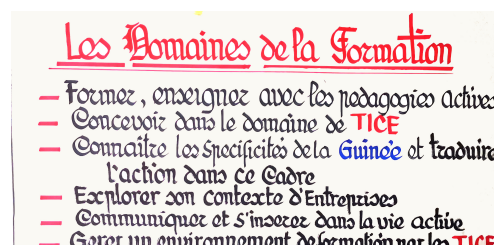 Les Domaines de la Formation
— Former, enseigner avec les pedagogies actives
— Concevoir dans le domaine de TICE
— Connaître les Specificités de la Guinée et traduire
l'action dans ce Cadre
— Explorer son contexte d'Entreprises
— Communiquer et s'inserer dans la vie active
— Gerer un environnement de formation par les TICE